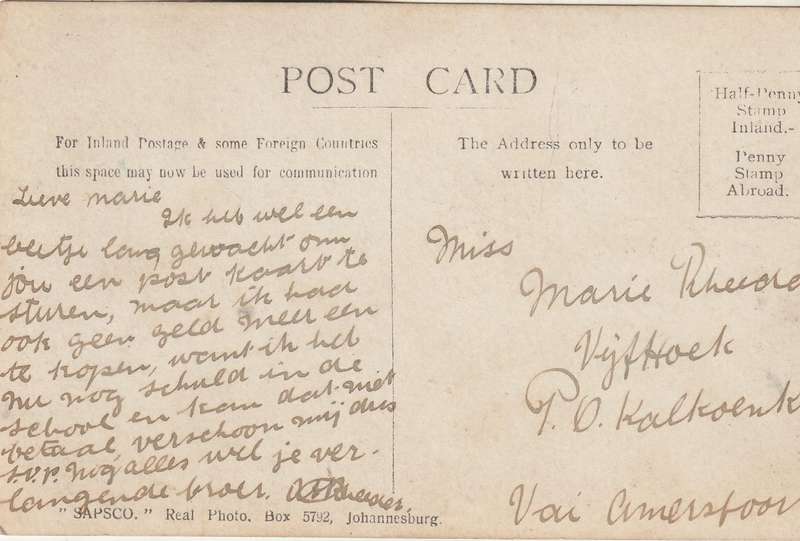 POST CARD
For Inland Postage & some Foreign Countries
this space may now be used for communication
The Address only to be
written here.
Half-Penny
Stamp
Inland.-
Penny
Stamp
Abroad.
Lieve Marie
Ik heb wel een
beetje lang gewacht om
jou een post kaart te
sturen, maar ik had
ook geen geld meer een
te kopen, want ik heb
nu nog schuld in de
school en kan dat niet
betaal, verschoon mij dus
s.v.p. Nog alles wel je ver-
langende broer. Rheeder,
Miss
Marie Rheede
Vijfhoek
P. O. Kalkoenk
Vai Amersfoor
"SAPSCO." Real Photo, Box 5792, Johannesburg.